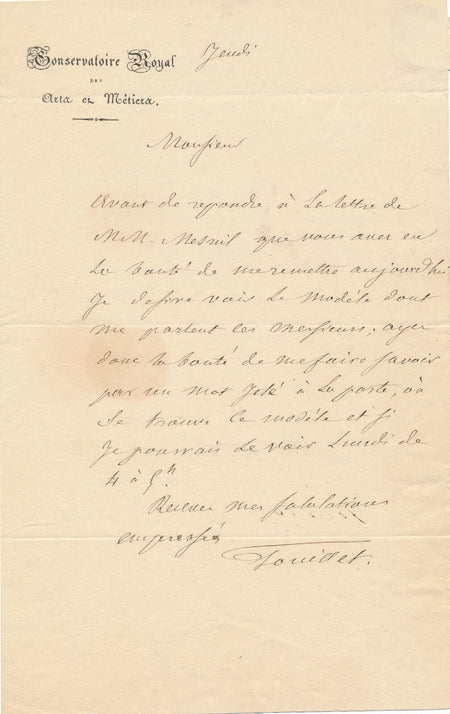 Conservatoire Royal
DES
Arts et Métiers.
Jeudi
Monsieur
Avant de repondre à la lettre de
M.M. Mesnil que vous avez eu
la bonté de me remettre aujourd'hui
Je desire voir le modèle dont
me parlent ces messieurs; ayez
donc la bonté de me faire savoir
par un mot jeté à la poste, où
se trouve le modèle et si
Je pourrais le voir Lundi de
4 à 5h.
Recevez mes salutations
empressées
Pouillet.